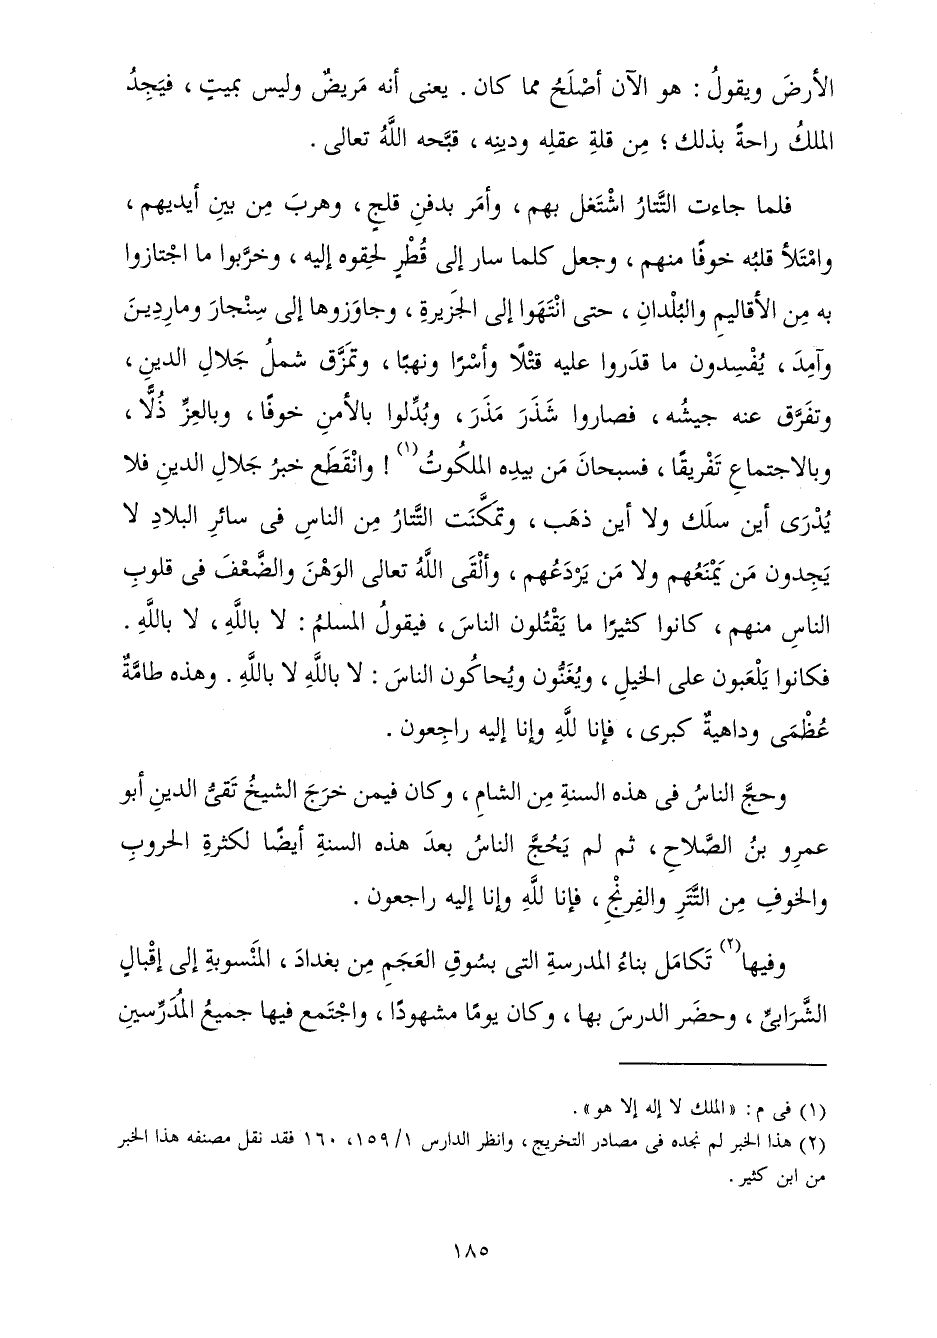 الأرضَ ويقولُ : هو الآن أصْلَحُ مما كان . يعنى أنه مَريضٌ وليس بميتٍ ، فيَجِدُ
الملكُ راحةً بذلك ؛ مِن قلةِ عقلِه ودينِه ، قبَّحه اللَّهُ تعالى .
فلما جاءت التَّتارُ اشْتَغل بهم ، وأمَر بدفنِ قلجٍ ، وهربَ مِن بينِ أيديهم ،
وامْتَلأ قلبُه خوفًا منهم ، وجعل كلما سار إلى قُطْرٍ لحِقوه إليه ، وخرَّبوا ما اجْتازوا
به مِن الأقاليمِ والبُلْدانِ ، حتى انْتَهَوا إلى الجَزيرةِ ، وجاوَزوها إلى سِنْجارَ ومارِدِينَ
وآمِدَ ، يُفْسِدون ما قدَروا عليه قتْلًا وأسْرًا ونهبًا ، وتمَزَّق شملُ جَلالِ الدينِ ،
وتفَرَّق عنه جيشُه ، فصاروا شَذَرَ مَذَرَ ، وبُدِّلوا بالأمنِ خوفًا ، وبالعِزِّ ذُلًّا ،
وبالاجتماعِ تَفْريقًا ، فسبحانَ مَن بيدِه الملكوتُ(١) ! وانْقَطَع خبرُ جَلالِ الدينِ فلا
يُدْرَى أين سلَك ولا أين ذهَب ، وتمَكَّنَت التَّتارُ مِن الناسِ فى سائرِ البلادِ لا
يَجِدون مَن يَمْنَعُهم ولا مَن يَرْدَعُهم ، وألْقَى اللَّهُ تعالى الوَهْنَ والضَّعْفَ فى قلوبِ
الناسِ منهم ، كانوا كثيرًا ما يَقْتُلون الناسَ ، فيقولُ المسلمُ : لا باللَّهِ ، لا باللَّهِ .
فكانوا يَلْعَبون على الخيلِ ، ويُغَنُّون ويُحاكُون الناسَ : لا باللَّهِ لا باللَّهِ . وهذه طامَّةٌ
عُظْمَى وداهيةٌ كبرى ، فإنا للَّهِ وإنا إليه راجِعون .
وحجَّ الناسُ فى هذه السنةِ مِن الشامِ ، وكان فيمن خرَجَ الشيخُ تَقىُّ الدينِ أبو
عمرِو بنُ الصَّلاحِ ، ثم لم يَحُجَّ الناسُ بعدَ هذه السنةِ أيضًا لكثرةِ الحروبِ
والخوفِ مِن التَّتَرِ والفِرِنْجِ ، فإنا للَّهِ وإنا إليه راجعون .
وفيها(٢) تَكامَل بناءُ المدرسةِ التى بسُوقِ العَجَمِ مِن بغدادَ ، المَنْسوبةِ إلى إقْبالٍ
الشَّرَابىِّ ، وحضَر الدرسَ بها ، وكان يومًا مشهودًا ، واجْتَمع فيها جميعُ المُدَرِّسين
(١) فى م : « الملك لا إله إلا هو » .
(٢) هذا الخبر لم نجده فى مصادر التخريج ، وانظر الدارس ١/ ١٥٩، ١٦٠ فقد نقل مصنفه هذا الخبر
من ابن كثير .
١٨٥